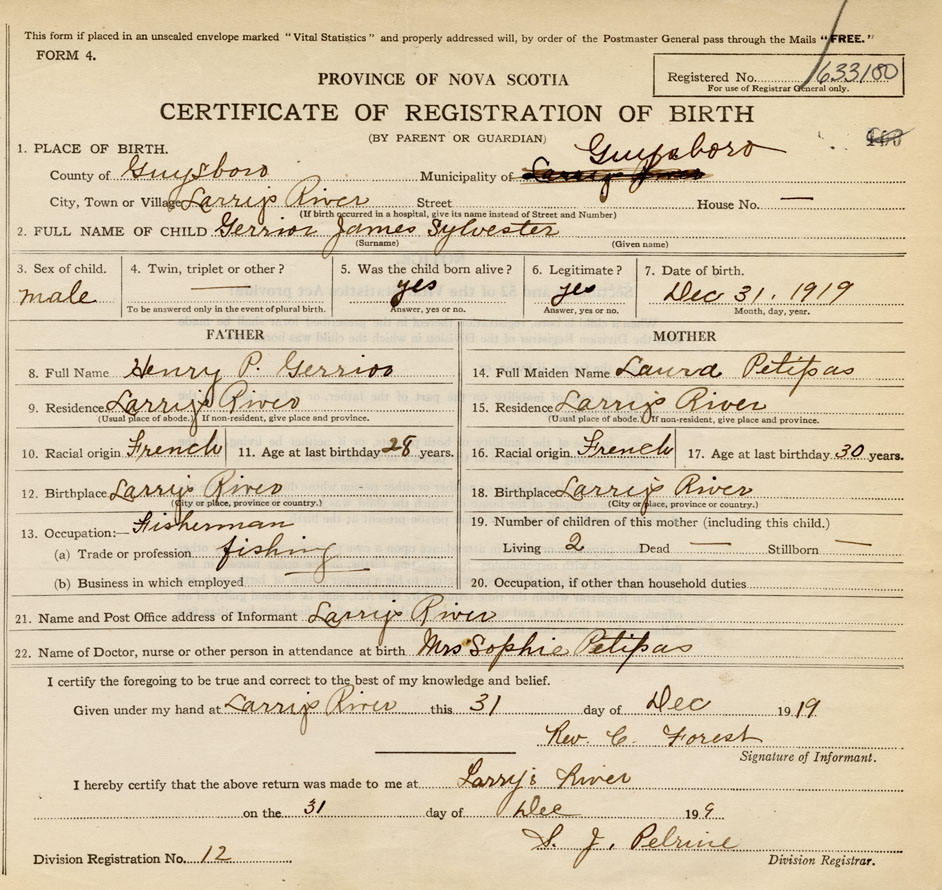 This form if placed in an unsealed envelope marked "Vital Statistics" and properly addressed will, by order of the Postmaster General pass through the Mails "FREE."
FORM 4.
PROVINCE OF NOVA SCOTIA
Registered No. 633180
For use of Registrar General only.
CERTIFICATE OF REGISTRATION OF BIRTH
(BY PARENT OR GUARDIAN)
1. PLACE OF BIRTH.
County of Guysboro Municipality of Guysboro
City, Town or Village Larrys River Street House No. —
(If birth occurred in a hospital, give its name instead of Street and Number)
2. FULL NAME OF CHILD Gerrior James Sylvester
(Surname) (Given name)
3. Sex of child. 4. Twin, triplet or other? 5. Was the child born alive? 6. Legitimate? 7. Date of birth.
male — yes yes Dec 31. 1919
To be answered only in the event of plural birth. Answer, yes or no. Answer, yes or no. Month, day, year.
FATHER MOTHER
8. Full Name Henry P. Gerrior 14. Full Maiden Name Laura Petipas
9. Residence Larrys River 15. Residence Larrys River
(Usual place of abode.) If non-resident, give place and province. (Usual place of abode.) If non-resident, give place and province.
10. Racial origin French 11. Age at last birthday 28 years. 16. Racial origin French 17. Age at last birthday 30 years.
12. Birthplace Larrys River 18. Birthplace Larrys River
(City or place, province or country.) (City or place, province or country.)
13. Occupation:— Fisherman 19. Number of children of this mother (including this child.)
(a) Trade or profession fishing Living 2 Dead — Stillborn —
(b) Business in which employed — 20. Occupation, if other than household duties
21. Name and Post Office address of Informant Larrys River
22. Name of Doctor, nurse or other person in attendance at birth Mrs Sophie Petipas
I certify the foregoing to be true and correct to the best of my knowledge and belief.
Given under my hand at Larrys River this 31 day of Dec 1919
Rev. C. Forest
Signature of Informant.
I hereby certify that the above return was made to me at Larry's River
on the 31 day of Dec 19 9
S. J. Pelrine
Division Registration No. 12 Division Registrar.